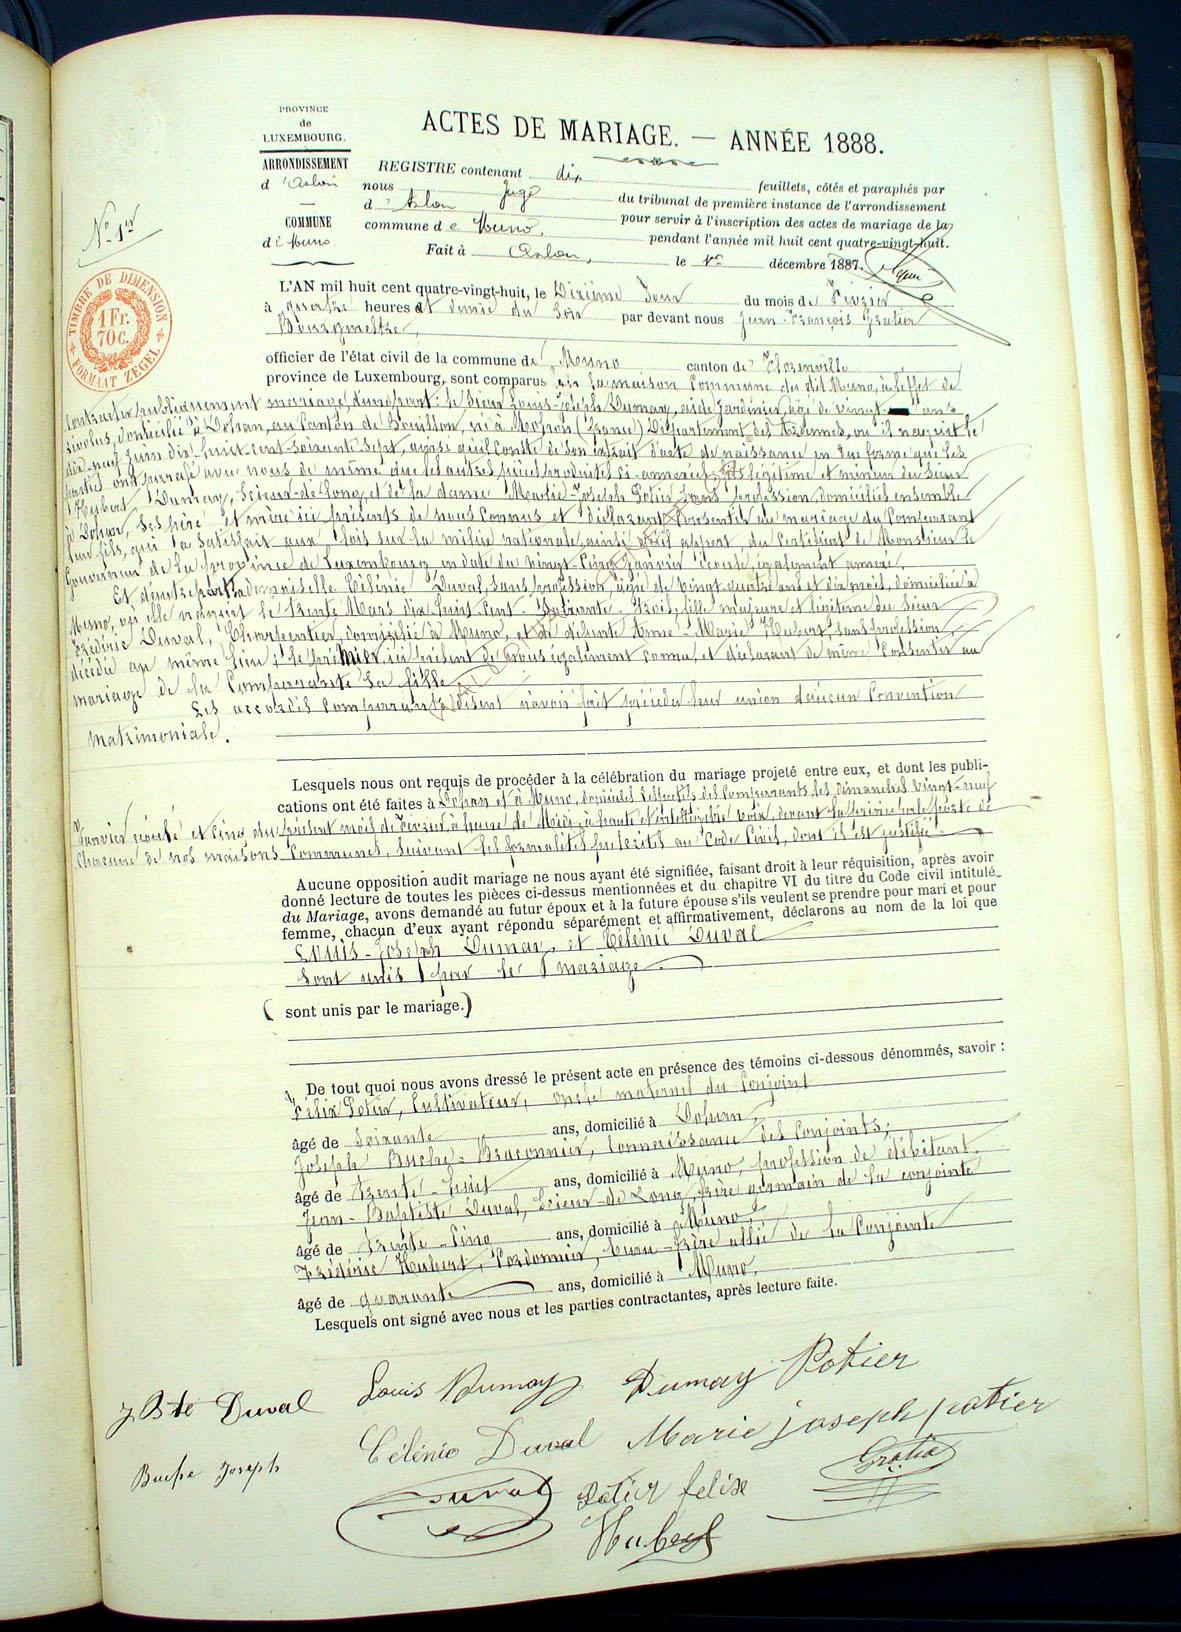 PROVINCE
de
LUXEMBOURG.
ARRONDISSEMENT
d'Arlon
COMMUNE
de Muno.
N° 1er
TIMBRE DE DIMENSION
1 Fr.
70 C.
FORMAAT ZEGEL
ACTES DE MARIAGE. — ANNÉE 1888.
REGISTRE contenant dix feuillets, côtés et paraphés par
nous Juge du tribunal de première instance de l'arrondissement
d'Arlon pour servir à l'inscription des actes de mariage de la
commune de Muno, pendant l'année mil huit cent quatre-vingt-huit.
Fait à Arlon, le décembre 1887.
L'AN mil huit cent quatre-vingt-huit, le Dixième Jour du mois de Février
à quatre heures et demie du Soir par devant nous Jean-François Gratia
Bourgmestre,
officier de l'état civil de la commune de Muno canton de Florenville
province de Luxembourg, sont comparus en la maison Commune du dit Muno, à l'effet de
contracter publiquement mariage, d'une part: le Sieur Louis-Joseph Dumay, aide jardinier, âgé de vingt ans
révolus, domicilié à Dohan, au Canton de Bouillon, né à Mogron (France) Département des Ardennes, où il naquit le
dix-neuf Juin dix-huit-cent-soixante-Sept, ainsi qu'il Conste de Son extrait d'acte de naissance en due forme que les
parties ont paraphé avec nous de même que les autres pièces produites ci-annexées; fils légitime et mineur du Sieur
Hubert Dumay, Scieur-de-Long, et de la dame Marie-Joseph Potier, Sans profession, domiciliés ensemble
à Dohan, Ses père et mère ici présents de nous Connus et déclarant Consentir au mariage du Comparant
leur fils, qui a Satisfait aux lois sur la milice nationale, ainsi qu'il appert du Certificat de Monsieur le
Gouverneur de la province de Luxembourg en date du vingt-Cinq Janvier écoulé, également annexé,
Et d'autre part la demoiselle Célénie Duval, Sans profession, âgée de vingt-quatre ans et dix mois, domiciliée à
Muno, où elle naquit le trente Mars dix-huit-Cent-Soixante-trois, fille majeure et légitime du Sieur
Frédéric Duval, Charpentier, domicilié à Muno, et de défunte Anne-Marie Hubert, Sans profession,
décédée au même lieu; le premier ici présent de nous également connu, et déclarant de même Consentir au
mariage de la Comparante Sa fille.
Les accordés Comparants disent n'avoir fait précéder leur union d'aucun Convention
matrimoniale.
Lesquels nous ont requis de procéder à la célébration du mariage projeté entre eux, et dont les publi-
cations ont été faites à Dohan et à Muno, domiciles respectifs des Comparants, les dimanches vingt-neuf
Janvier écoulé et Cinq du présent mois de Février, à heure de Midi, à haute et intelligible voix, devant la principale porte de
chacune de nos maisons Communes, Suivant les formalités prescrites au Code Civil, dont il est justifié.
Aucune opposition audit mariage ne nous ayant été signifiée, faisant droit à leur réquisition, après avoir
donné lecture de toutes les pièces ci-dessus mentionnées et du chapitre VI du titre du Code civil intitulé
du Mariage, avons demandé au futur époux et à la future épouse s'ils veulent se prendre pour mari et pour
femme, chacun d'eux ayant répondu séparément et affirmativement, déclarons au nom de la loi que
Louis-Joseph Dumay, et Célénie Duval
Sont unis par le mariage.
( sont unis par le mariage.)
De tout quoi nous avons dressé le présent acte en présence des témoins ci-dessous dénommés, savoir :
Félix Potier, Cultivateur, oncle maternel du Conjoint
âgé de Soixante ans, domicilié à Dohan,
Joseph Buche-Braconnier, Connaissance des Conjoints,
âgé de trente-huit ans, domicilié à Muno, profession de débitant.
Jean-Baptiste Duval, Scieur-de-Long, frère germain de la conjointe
âgé de trente-Cinq ans, domicilié à Muno,
Frédéric Hubert, Cordonnier, beau-frère allié de la Conjointe
âgé de quarante ans, domicilié à Muno.
Lesquels ont signé avec nous et les parties contractantes, après lecture faite.
J Bte Duval Louis Dumay Dumay Potier
Célénie Duval Marie joseph potier
Buche Joseph
Duval Potier felix Gratia
Hubert